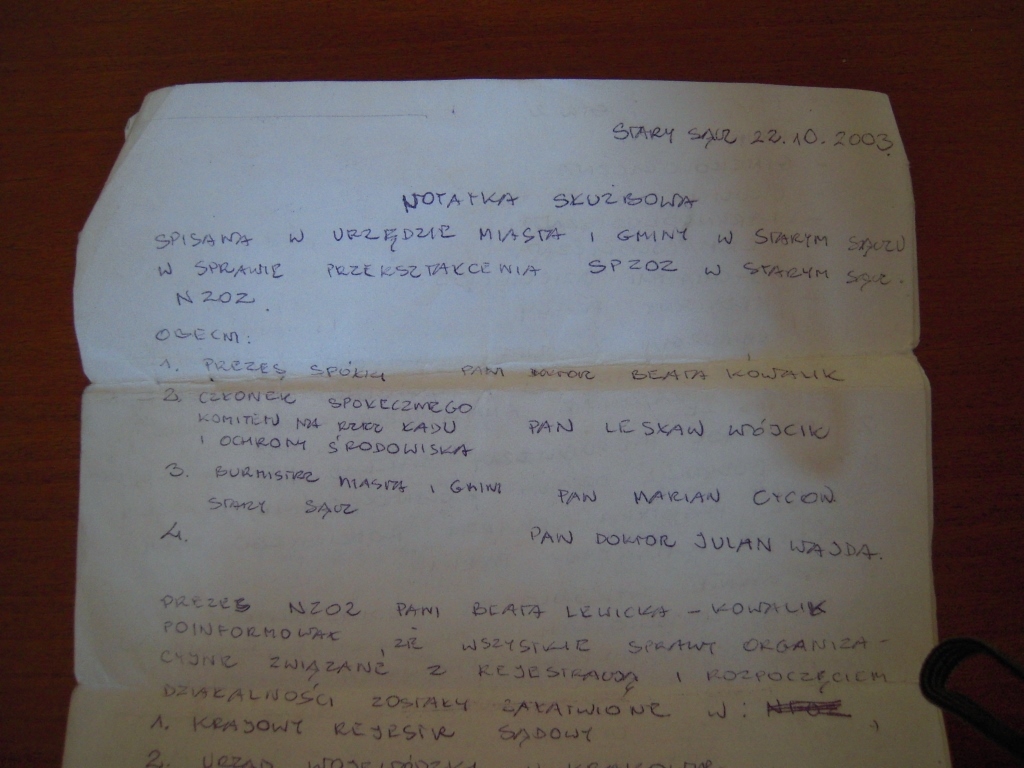 STARY SĄCZ 22.10.2003
NOTATKA SŁUŻBOWA
SPISANA W URZĘDZIE MIASTA I GMINY W STARYM SĄCZU
W SPRAWIE PRZEKSZTAŁCENIA SPZOZ W STARYM SĄCZ.
NZOZ.
OBECNI:
1. PREZES SPÓŁKI PANI DOKTOR BEATA KOWALIK
2. CZŁONEK SPOŁECZNEGO
KOMITETU NA RZECZ ŁADU PAN LESŁAW WÓJCIK
I OCHRONY ŚRODOWISKA
3. BURMISTRZ MIASTA I GMINY PAN MARIAN CYCOŃ
STARY SĄCZ
4. PAN DOKTOR JULIAN WAJDA.
PREZES NZOZ PANI BEATA LEWICKA - KOWALIK
POINFORMOWAŁ, ŻE WSZYSTKIE SPRAWY ORGANIZA-
CYJNE ZWIĄZANE Z REJESTRACJĄ I ROZPOCZĘCIEM
DZIAŁALNOŚCI ZOSTAŁY ZAŁATWIONE W:
1. KRAJOWY REJESTR SĄDOWY
2. URZĄD WOJEWÓDZKI W KRAKOWIE